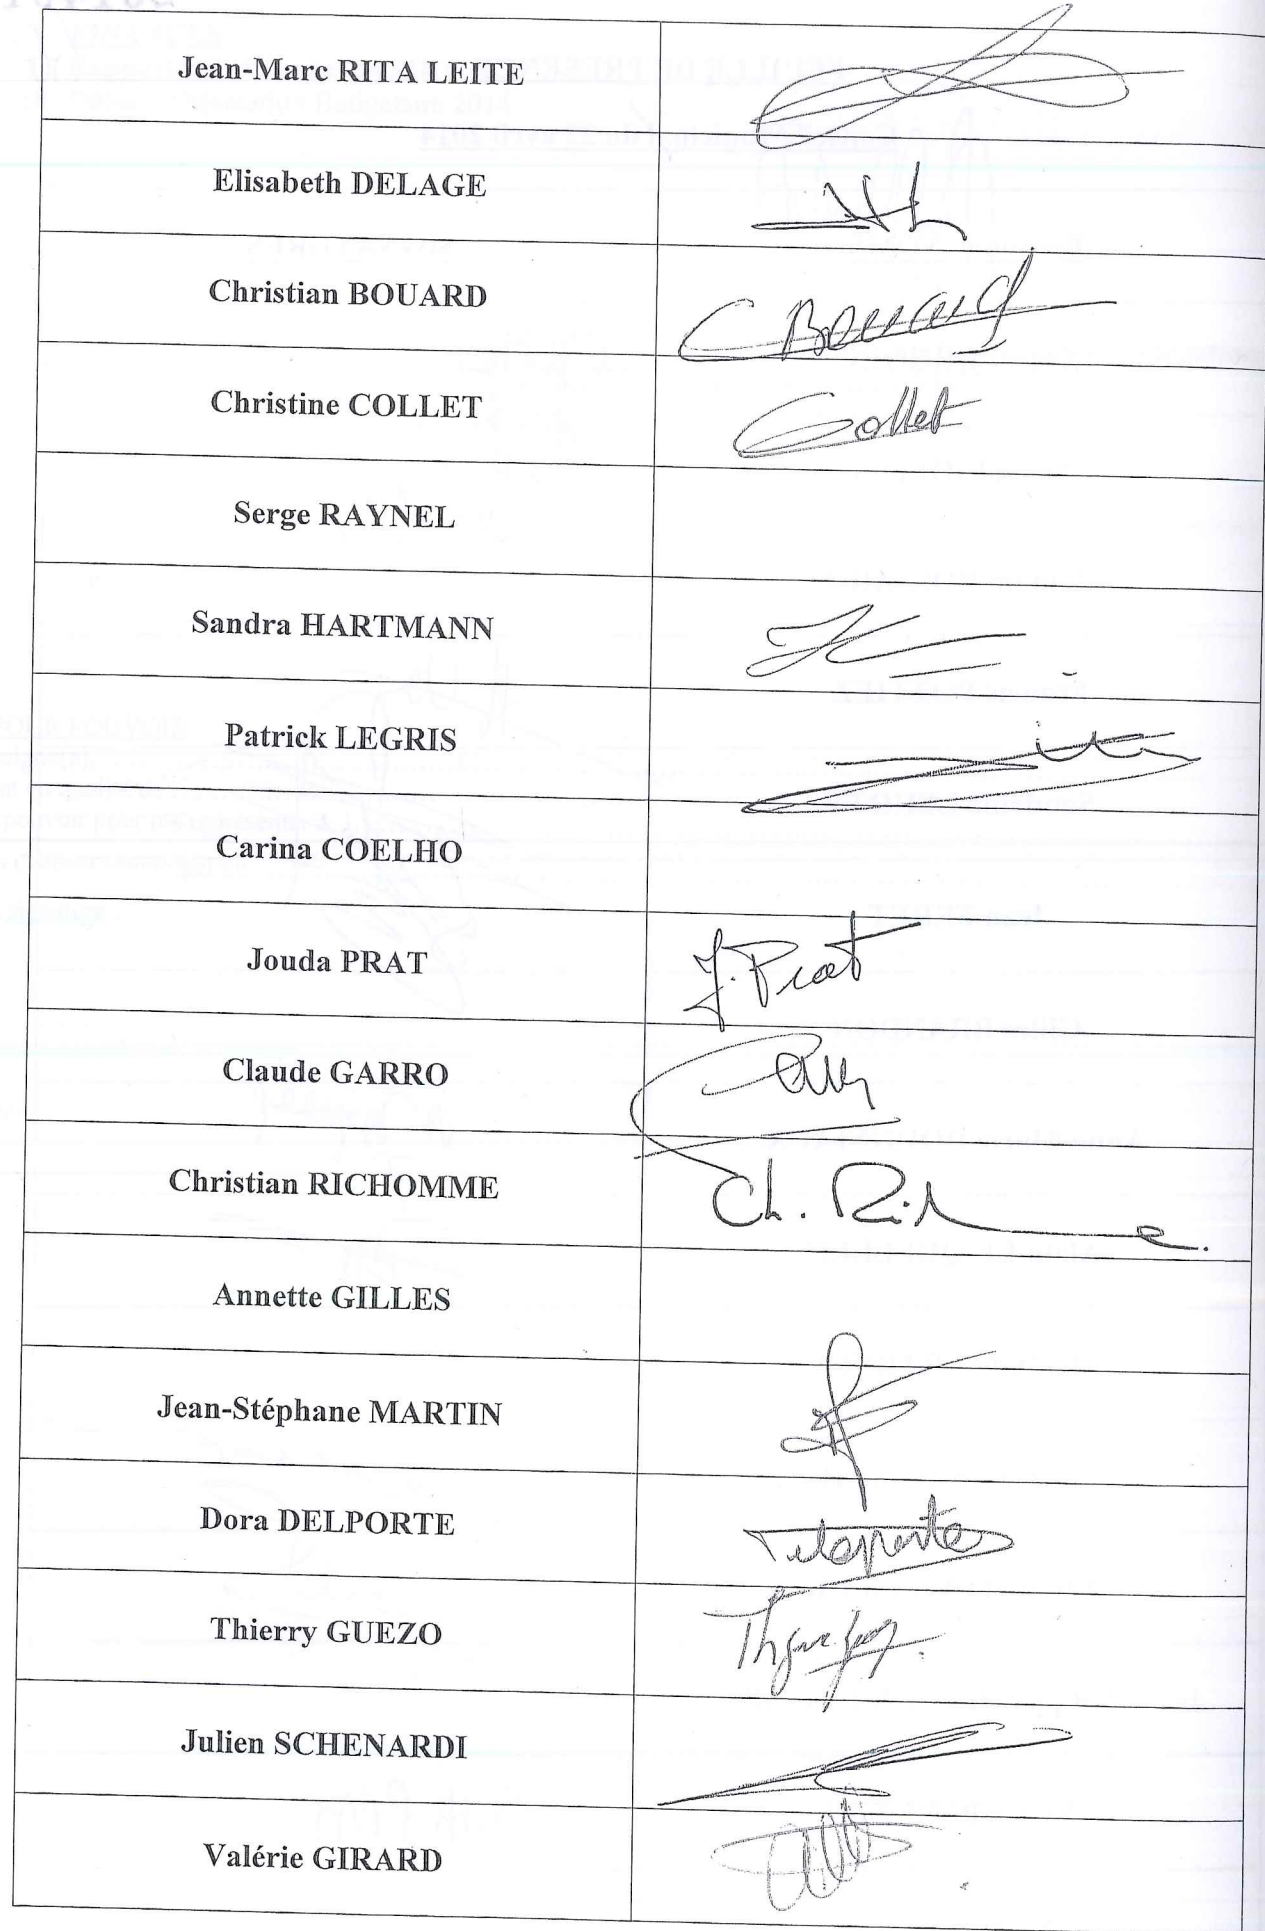 Jean-Marc RITA LEITE
Elisabeth DELAGE
Christian BOUARD
C Bouard
Christine COLLET
Collet
Serge RAYNEL
Sandra HARTMANN
Patrick LEGRIS
Carina COELHO
Jouda PRAT
J. Prat
Claude GARRO
Christian RICHOMME
Ch. Ri
Annette GILLES
Jean-Stéphane MARTIN
Dora DELPORTE
Delporte
Thierry GUEZO
Julien SCHENARDI
Valérie GIRARD